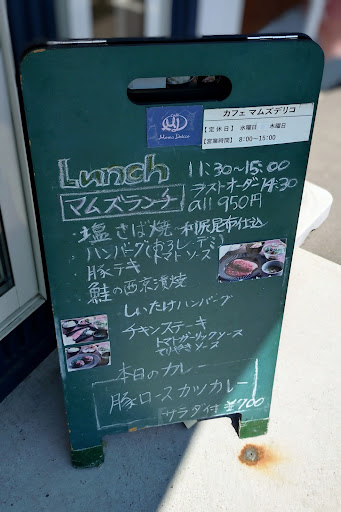 Mams Delico
カフェ マムズデリコ
【定休日】 水曜日 木曜日
【営業時間】 8:00〜15:00
Lunch 11:30〜15:00
マムズランチ ラストオーダー14:30
all 950円
塩さば焼〜利尻昆布仕込
ハンバーグ(おろし・デミ・トマトソース)
豚テキ
鮭の西京漬焼
しいたけハンバーグ
チキンステーキ
トマトガーリックソース
てりやきソース
本日のカレー
豚ロースカツカレー
サラダ付 ¥700